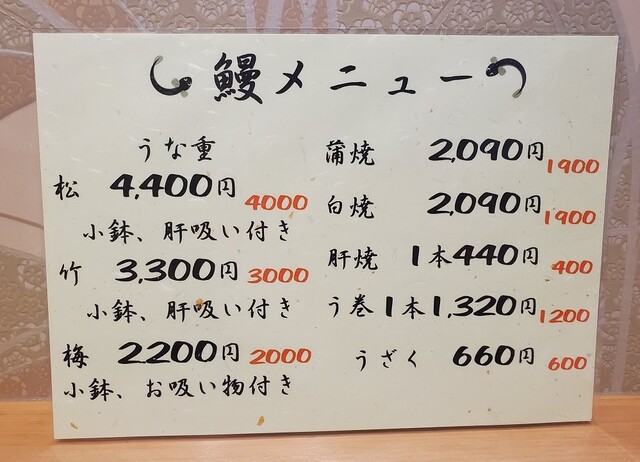 鰻メニュー
うな重
松 4,400円 4000
小鉢、肝吸い付き
竹 3,300円 3000
小鉢、肝吸い付き
梅 2200円 2000
小鉢、お吸い物付き
蒲焼 2,090円 1900
白焼 2,090円 1900
肝焼 1本440円 400
う巻1本1,320円 1200
うざく 660円 600